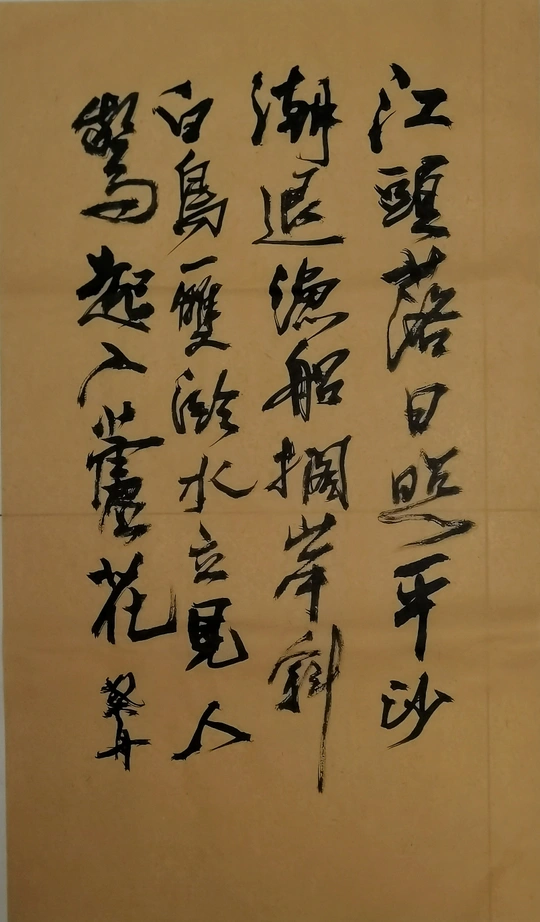 江頭落日照平沙
潮退漁船擱岸斜
白鳥一雙臨水立見人
驚起入蘆花